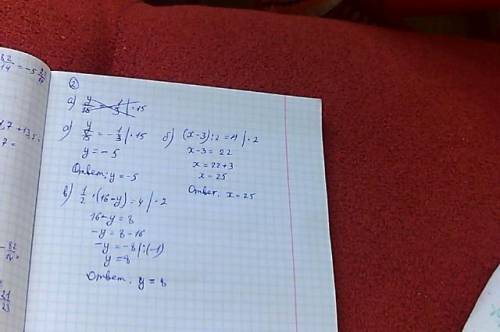 82/14 = -5
1,7 + 13,5
7 =
②
а) y/15 1/3 | · 15
а) y/15 = -1/3 | · 15
y = -5
Ответ: y = -5
б) (x-3) : 2 = 11 | · 2
x-3 = 22
x = 22+3
x = 25
Ответ. x = 25
в) 1/2 · (16-y) = 4 | · 2
16-y = 8
-y = 8-16
-y = -8 | : (-1)
y = 8
Ответ. y = 8
- 82/14
21/23